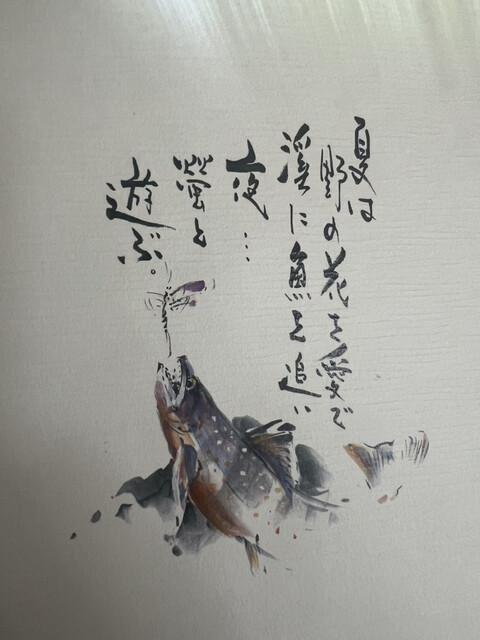 夏は
野の花を愛で
渓に魚を追い
夜…
螢と
遊ぶ。